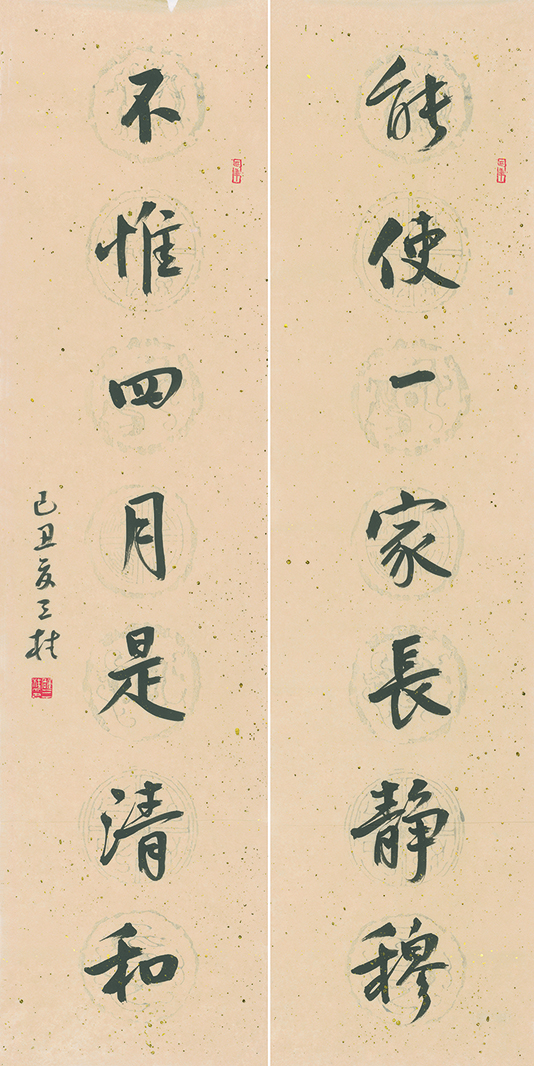 能使一家長静穆
不惟四月是清和
己丑夏三柱